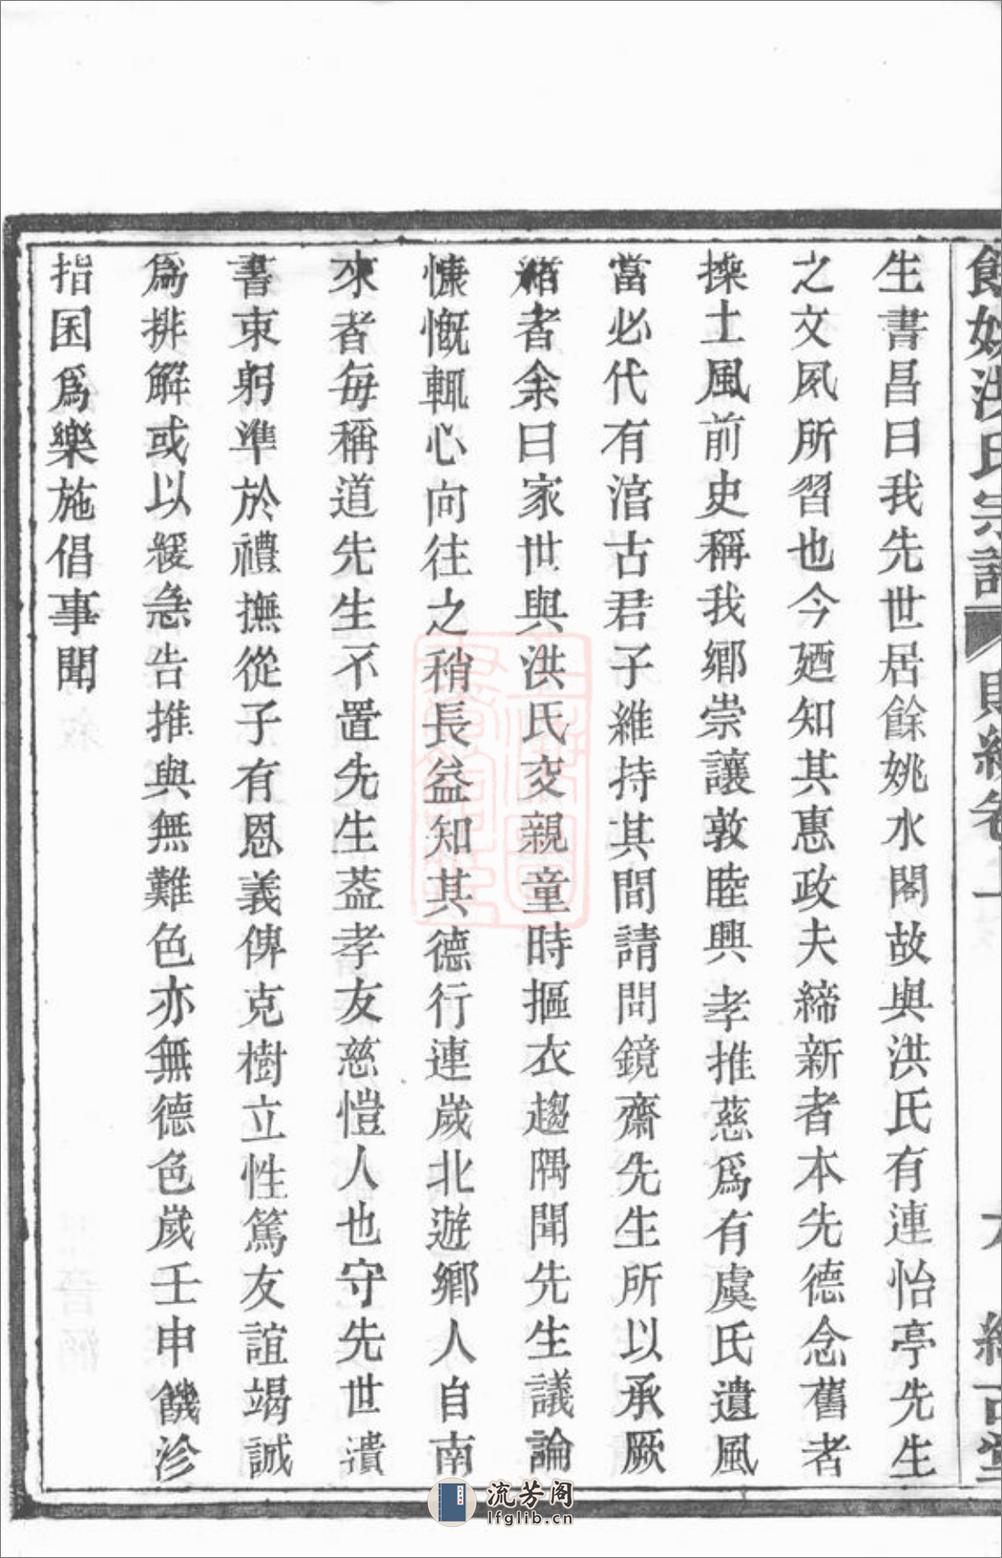 餘姚洪氏宗譜 貽經卷十 六 經
生書昌曰我先世居餘姚水閣故與洪氏有連怡亭先生
之文夙所習也今廼知其惠政夫締新者本先德念舊者
操土風前史稱我鄉崇讓敦睦興孝推慈爲有虞氏遺風
當必代有涫古君子維持其間請問鏡齋先生所以承厥
緒者余曰家世與洪氏交親童時摳衣趨隅聞先生議論
慷慨輒心向往之稍長益知其德行連歲北遊鄉人自南
來者每稱道先生不置先生葢孝友慈愷人也守先世遺
書束躬準於禮撫從子有恩義俾克樹立性篤友誼竭誠
爲排解或以緩急告推與無難色亦無德色歲壬申饑沴
指囷爲樂施倡事聞
流芳阁
lfglib.cn